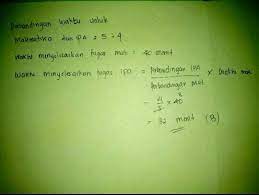 Perbandingan waktu untuk
Matematika dan IPA = 5 : 4
Waktu menyelesaikan tugas mat = 40 menit
Waktu menyelesaikan tugas IPA = Perbandingan IPA / Perbandingan Mat ×
= 4/5 × 40 8
= 32 menit (B)